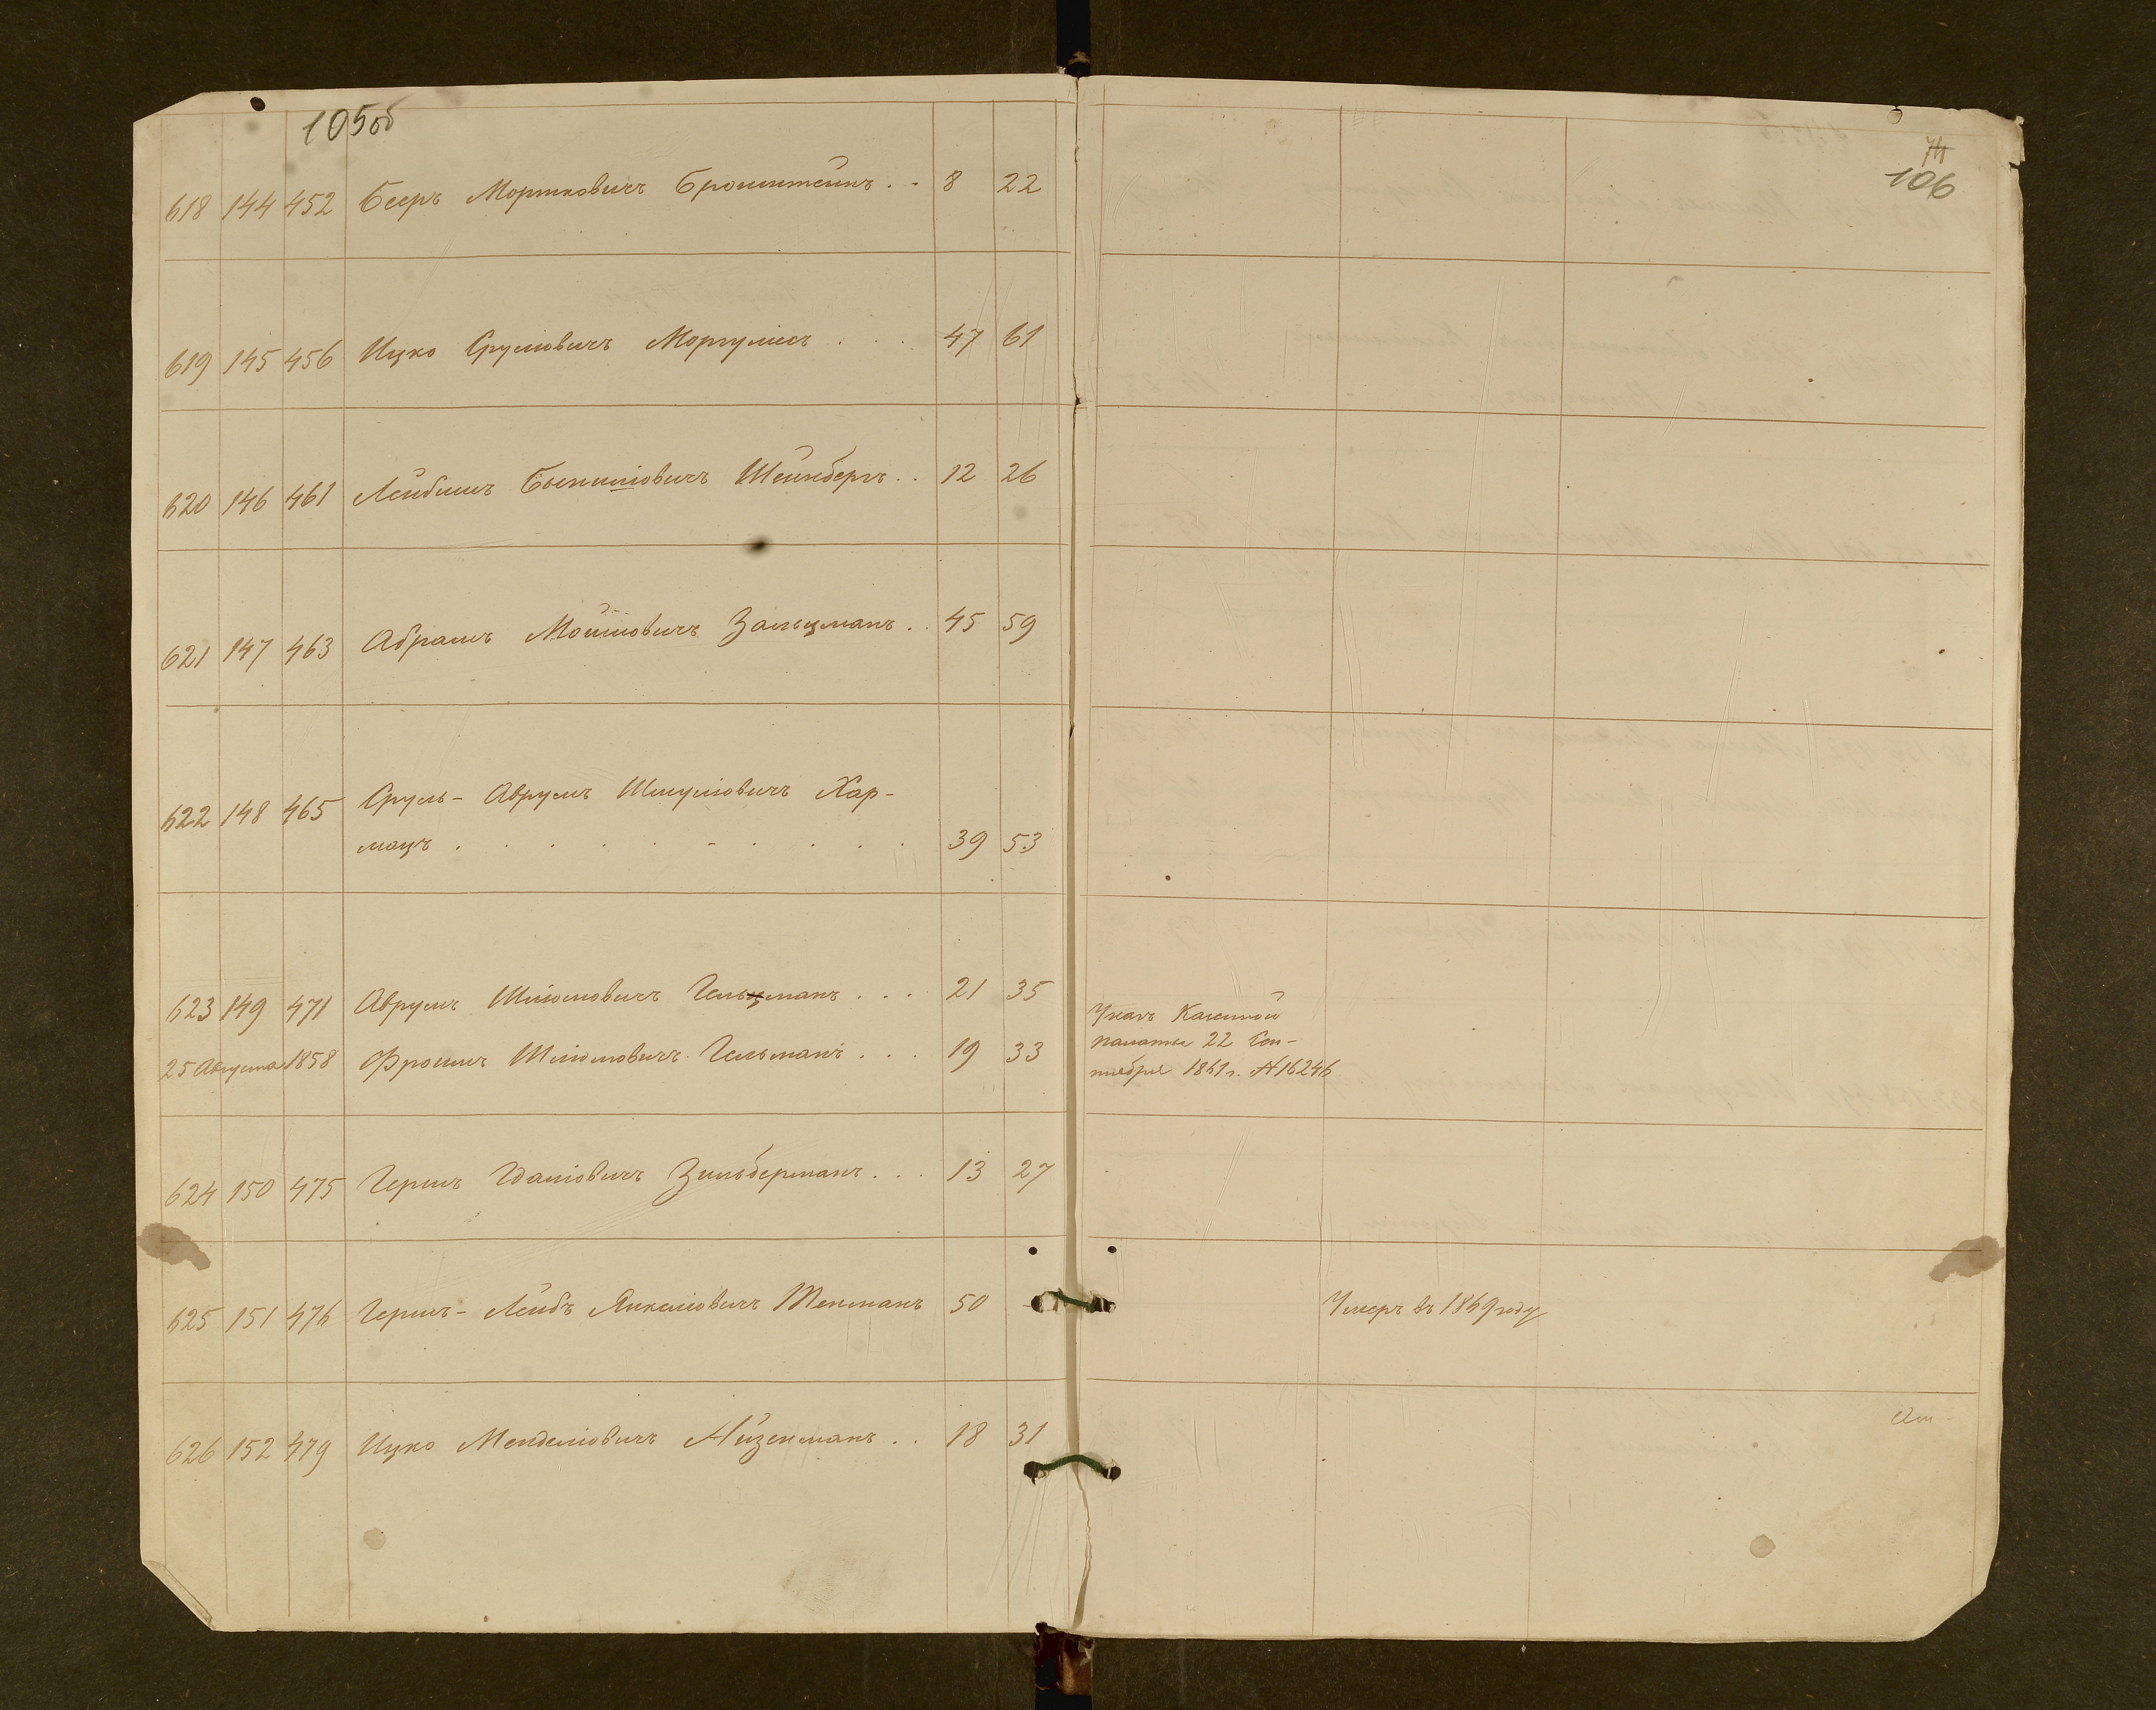 105об
74
106
618 144 452 Бееръ Мортковичъ Бронштейнъ . . 8 22
619 145 456 Ицко Сруліовичъ Моргулисъ . . . 47 61
620 146 461 Лейбишъ Шейнбергъ . . 12 26
621 147 463 Абрамъ Мошіовичъ Зальцманъ . . 45 59
622 148 465 Сруль-Аврумъ Шмуліовичъ Хар-
мацъ . . . . . . . . . . 39 53
623 149 471 Аврумъ Шліомовичъ Гельцманъ . . . 21 35
25 Августа 1858 Фроимъ Шліомовичъ Гельманъ . . . 19 33
Указъ Казенной
палаты 22 Сен-
тября 1861 г. № 16246
624 150 475 Гершъ Гдаліовичъ Зильберманъ . . . 13 27
625 151 476 Гершъ-Лейбъ Янкеліовичъ Текманъ 50 -
Умеръ въ 1869 году
626 152 479 Ицко Менделіовичъ Айзенманъ . . 18 31